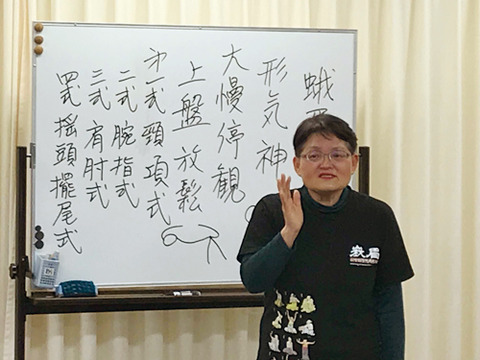 蛾
形気神
大慢停観
上盤放鬆
才一式頸項式
二式腕指式
三式肩肘式
四式搖頭擺尾式